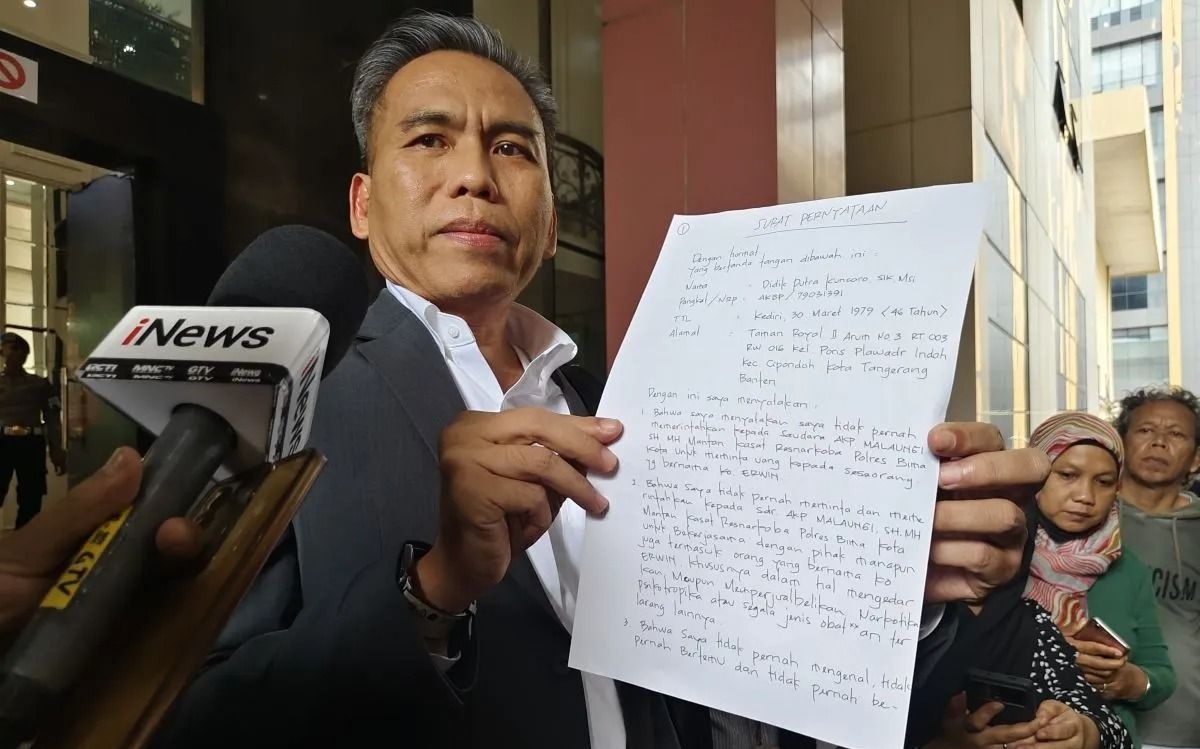 iNews
RCTI MNCTV GTV iNews
iNews
GTV
①
SURAT PERNYATAAN
Dengan hormat
Yang bertanda tangan dibawah ini :
Nama : Didik Putra Kuncoro, SIK, MSi
Pangkat/NRP : AKBP/79031391
TTL : Kediri, 30 Maret 1979 <46 Tahun>
Alamat : Taman Royal II Arum No. 3 RT 003
RW 016 Kel Poris Plawadr Indah
Kec. Cipondoh Kota Tangerang
Banten
Dengan ini saya menyatakan :
1. Bahwa saya menyatakan saya tidak pernah
memerintahkan kepada saudara AKP MALAUNGI
SH. MH Mantan Kasat Resnarkoba Polres Bima
Kota untuk meminta uang kepada seseorang
yg bernama ko ERWIN.
2. Bahwa saya tidak pernah meminta dan meme
rintahkan kepada sdr. AKP MALAUNGI. SH. MH
Mantan Kasat Resnarkoba Polres Bima Kota
untuk Bekerjasama dengan pihak manapun
juga termasuk orang yang bernama ko
ERWIN. Khususnya dalam hal mengedar
kan Maupun Memperjualbelikan Narkotika
psikotropika atau segala jenis obat"an ter
larang lainnya.
3. Bahwa saya tidak pernah mengenal, tidak
pernah Bertemu dan tidak pernah be-
CISM